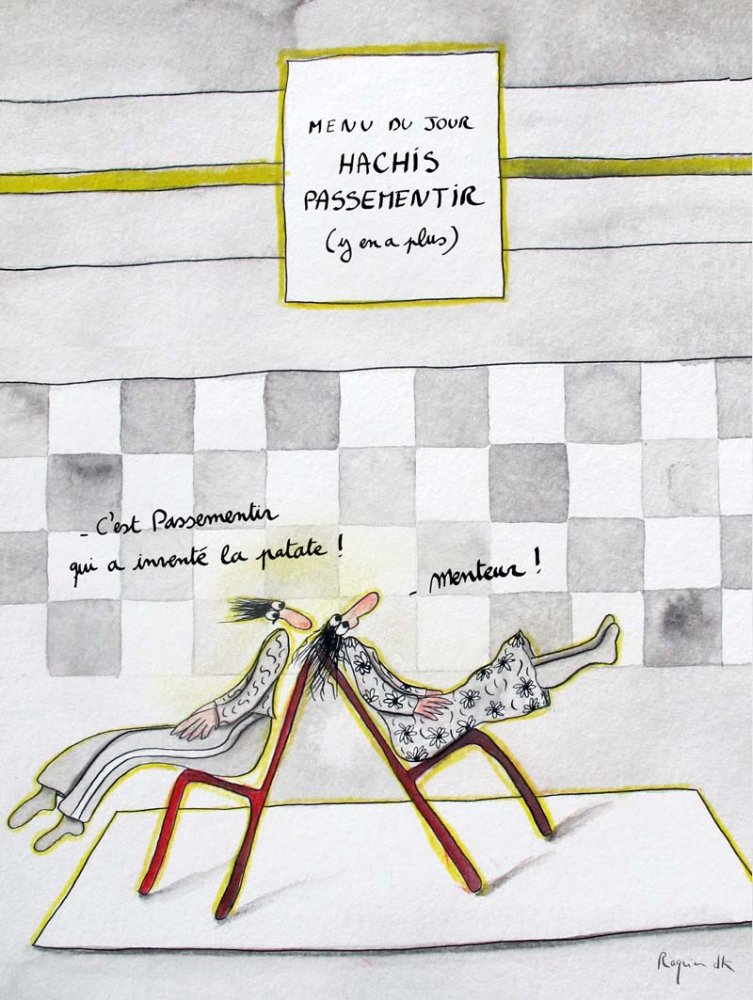 MENU DU JOUR
HACHIS
PASSEMENTIR
(y en a plus)
- C'est Passementir
qui a inventé la patate !
- Menteur !